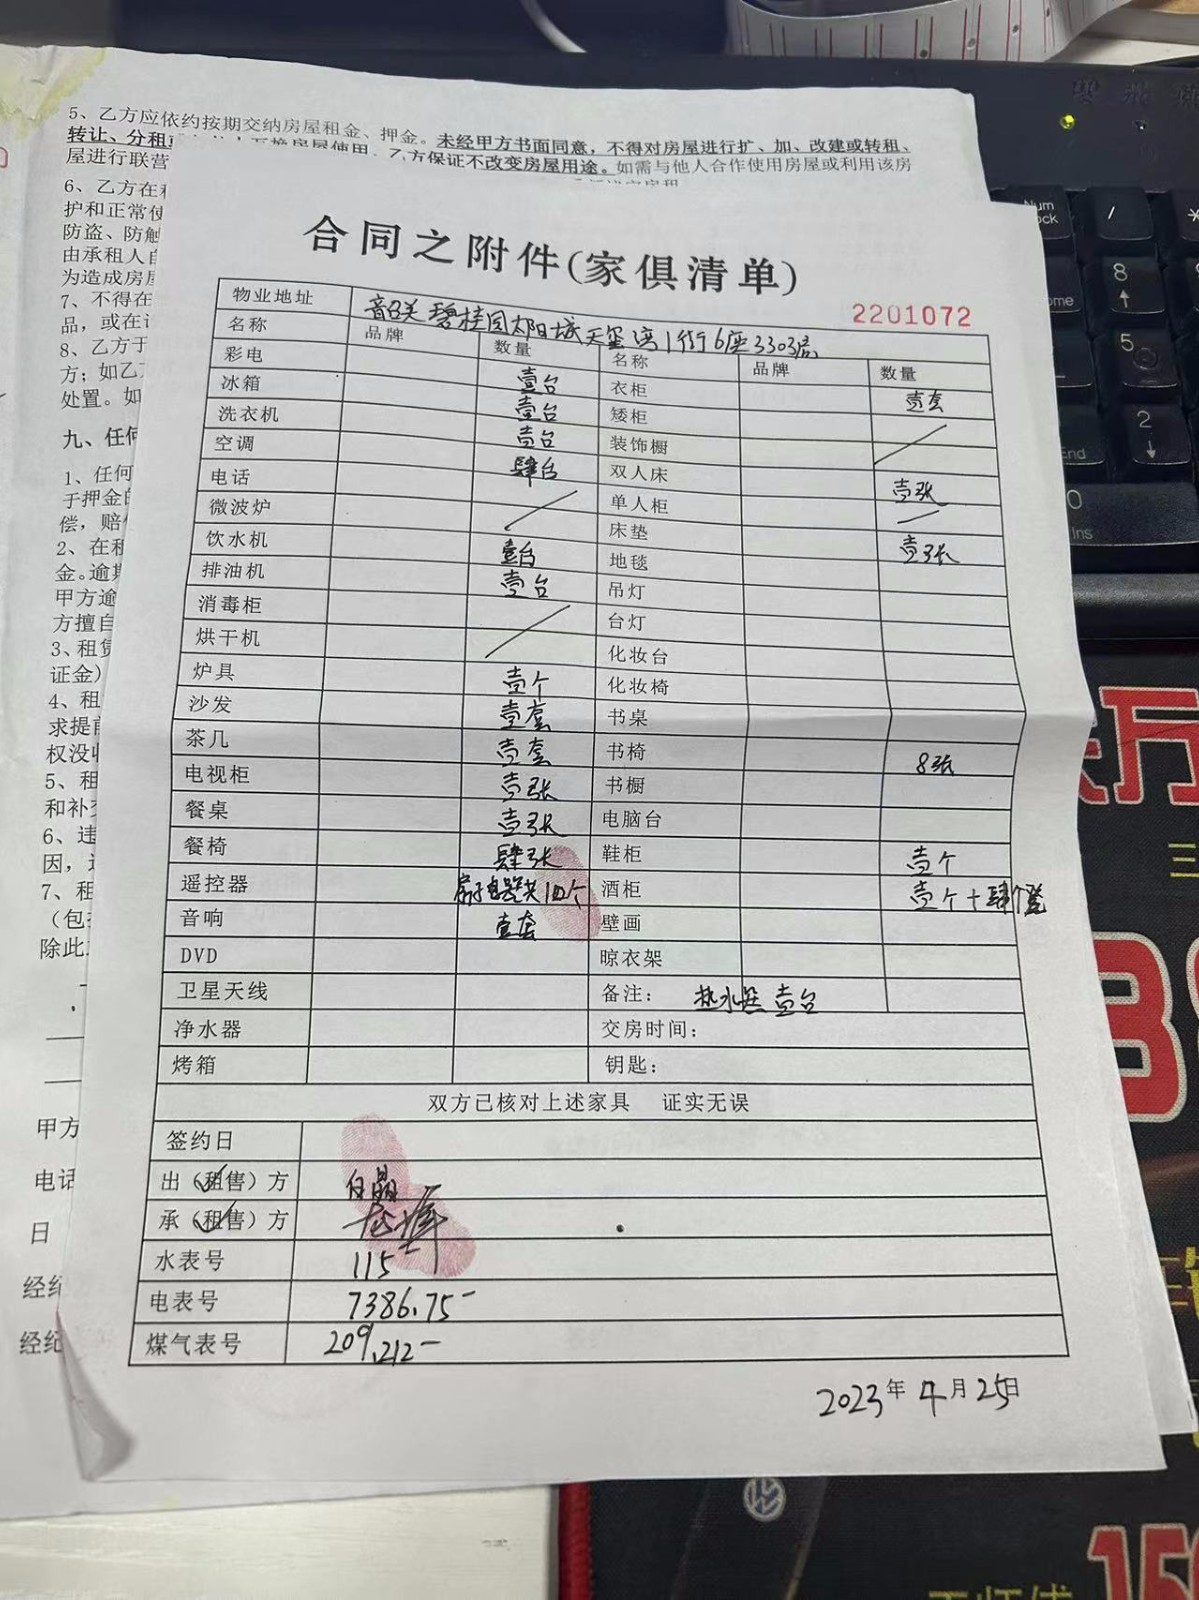 5、乙方应依约按期交纳房屋租金、押金。未经甲方书面同意，不得对房屋进行扩、加、改建或转租、
转让、分租
乙方保证不改变房屋用途。如需与他人合作使用房屋或利用该房
屋进行联营
6、乙方在
护和正常使
防盗、防触
由承租人自
为造成房屋
7、不得在
品，或在
8、乙方于
方；如乙
处置。如
九、任何
1、任何
于押金的
偿，赔
2、在租
金。逾期
甲方逾
方擅自
3、租赁
证金）
4、租
求提前
权没收
5、租
和补交
6、违
因，
7、租
（包
除此
甲方
电话
日
经纪
经纪
合同之附件(家俱清单)
2201072
物业地址 韶关碧桂园太阳城天玺湾1街6座3303房
名称 品牌 数量 名称 品牌 数量
彩电 壹台 衣柜 壹套
冰箱 壹台 矮柜
洗衣机 壹台 装饰橱
空调 肆台 双人床 壹张
电话 单人柜
微波炉 壹台 床垫 壹张
饮水机 壹台 地毯
排油机 吊灯
消毒柜 台灯
烘干机 壹个 化妆台
炉具 壹套 化妆椅
沙发 壹套 书桌
茶几 壹张 书椅 8张
电视柜 壹张 书橱
餐桌 肆张 电脑台
餐椅 鞋柜 壹个
遥控器 酒柜 壹个+肆个凳
音响 壹套 壁画
DVD 晾衣架
卫星天线 备注： 热水器壹台
净水器 交房时间：
烤箱 钥匙：
双方已核对上述家具 证实无误
签约日
出（租售）方 白晶
承（租售）方
水表号 115
电表号 7386.75-
煤气表号 209.212-
2023年4月25日
Num
Lock
/
8
5
2
End
0
Ins